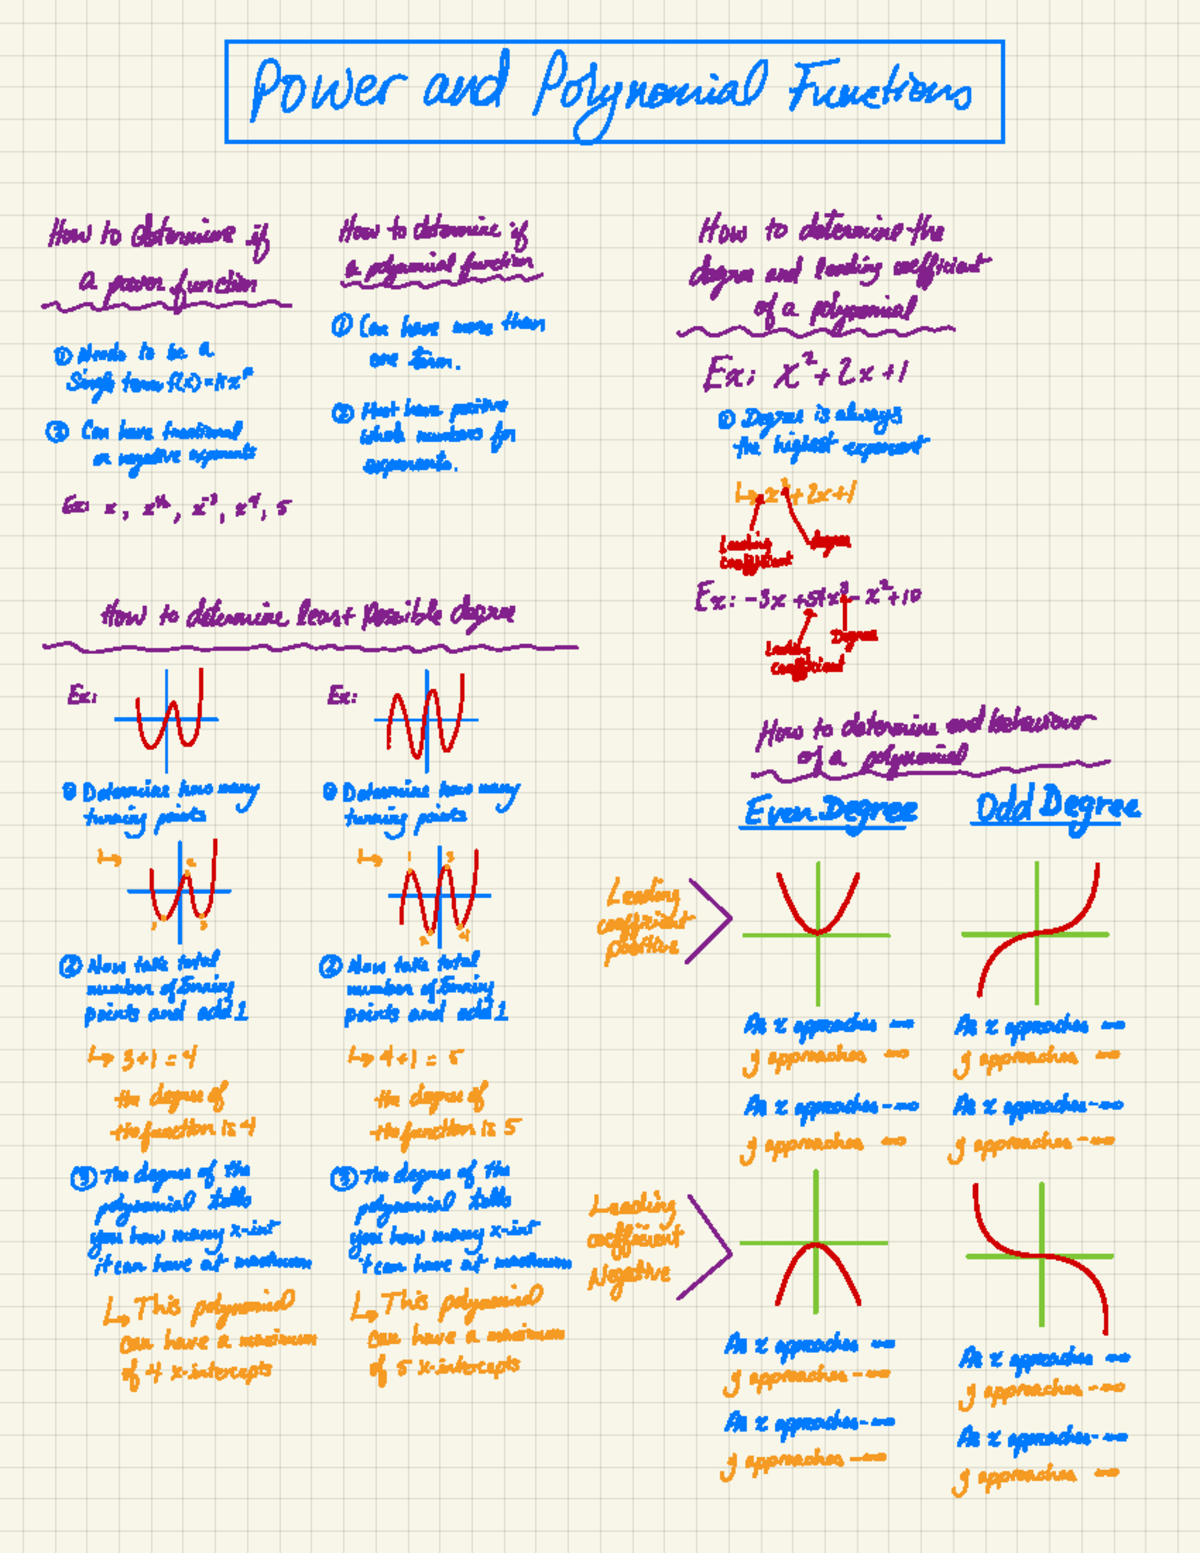 Power and Polynomial Functions
How to determine if
a power function
① Needs to be a
Single term f(x)=kxⁿ
② Can have fractional
or negative exponents
Ex: x, x^½, x⁻³, x⁴, 5
How to determine if
a polynomial function
① Can have more than
one term.
② Must have positive
whole numbers for
exponents.
How to determine the
degree and leading coefficient
of a polynomial
Ex: x²+2x+1
① Degree is always
the highest exponent
↳ x²+2x+1
Leading
coefficient
degree
Ex: -3x + 54x³ - x²+10
Leading
coefficient
Degree
How to determine least possible degree
Ex:
① Determine how many
turning points
↳
1 2 3
② Now take total
number of turning
points and add 1
↳ 3+1 = 4
the degree of
the function is 4
③ The degree of the
polynomial tells
you how many x-int
it can have at maximum
↳ This polynomial
can have a maximum
of 4 x-intercepts
Ex:
① Determine how many
turning points
↳
1 2 3 4
② Now take total
number of turning
points and add 1
↳ 4+1 = 5
the degree of
the function is 5
③ The degree of the
polynomial tells
you how many x-int
it can have at maximum
↳ This polynomial
can have a maximum
of 5 x-intercepts
How to determine end behaviour
of a polynomial
Even Degree
Odd Degree
Leading
coefficient
positive
As x approaches ∞
y approaches ∞
As x approaches -∞
y approaches ∞
As x approaches ∞
y approaches ∞
As x approaches -∞
y approaches -∞
Leading
coefficient
Negative
As x approaches ∞
y approaches -∞
As x approaches -∞
y approaches -∞
As x approaches ∞
y approaches -∞
As x approaches -∞
y approaches ∞